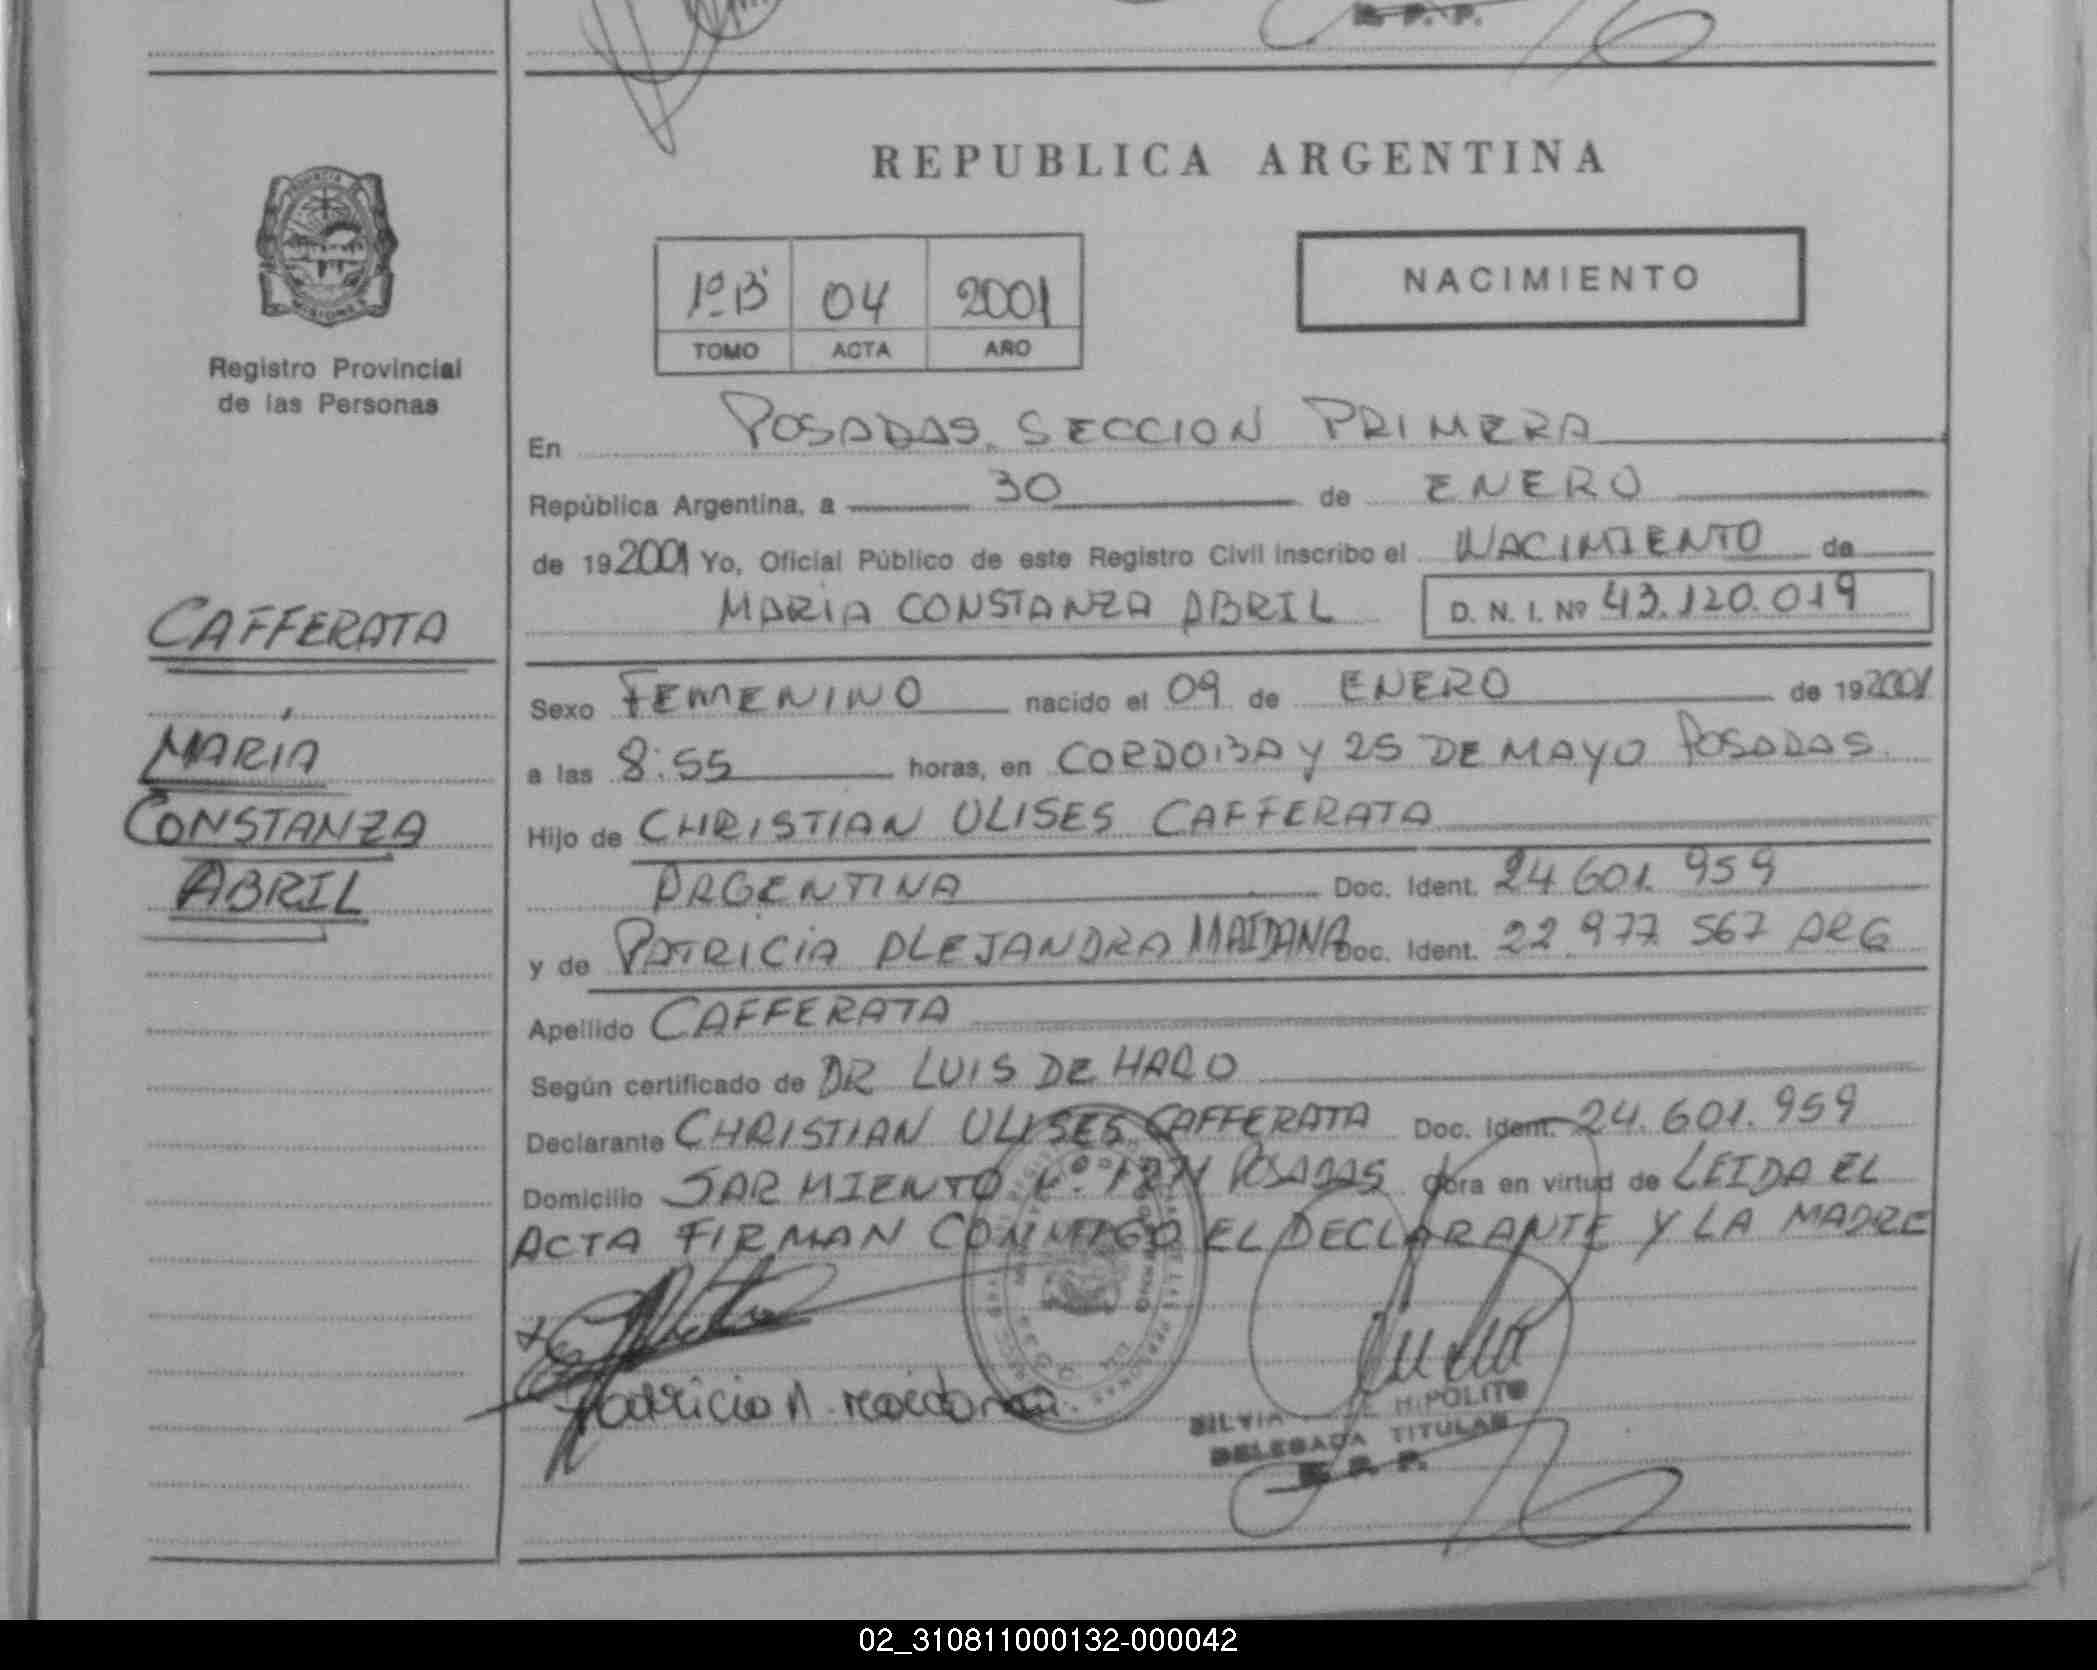 REPUBLICA ARGENTINA
PROVINCIA DE
MISIONES
Registro Provincial
de las Personas
1º B 04 2001
TOMO ACTA AÑO
NACIMIENTO
En POSADAS, SECCION PRIMERA
República Argentina, a 30 de ENERO
de 192001 Yo, Oficial Público de este Registro Civil inscribo el NACIMIENTO de
MARIA CONSTANZA ABRIL D. N. I. Nº 43.120.019
CAFFERATA
MARÍA
CONSTANZA
ABRIL
Sexo FEMENINO nacido el 09 de ENERO de 192001
a las 8:55 horas, en CORDOBA Y 25 DE MAYO POSADAS.
Hijo de CHRISTIAN ULISES CAFFERATA
ARGENTINA Doc. Ident. 24.601.959
y de PATRICIA ALEJANDRA MAIDANA Doc. Ident. 22.977.567 ARG
Apellido CAFFERATA
Según certificado de DR LUIS DE HARO
Declarante CHRISTIAN ULISES CAFFERATA Doc. Ident. 24.601.959
Domicilio SARMIENTO Nº POSADAS Obra en virtud de LEIDA EL
ACTA FIRMAN CONMIGO EL DECLARANTE Y LA MADRE
Patricia A. Maidana
SILVIA HIPOLITO
DELEGADA TITULAR
R. P. P.
02_310811000132-000042